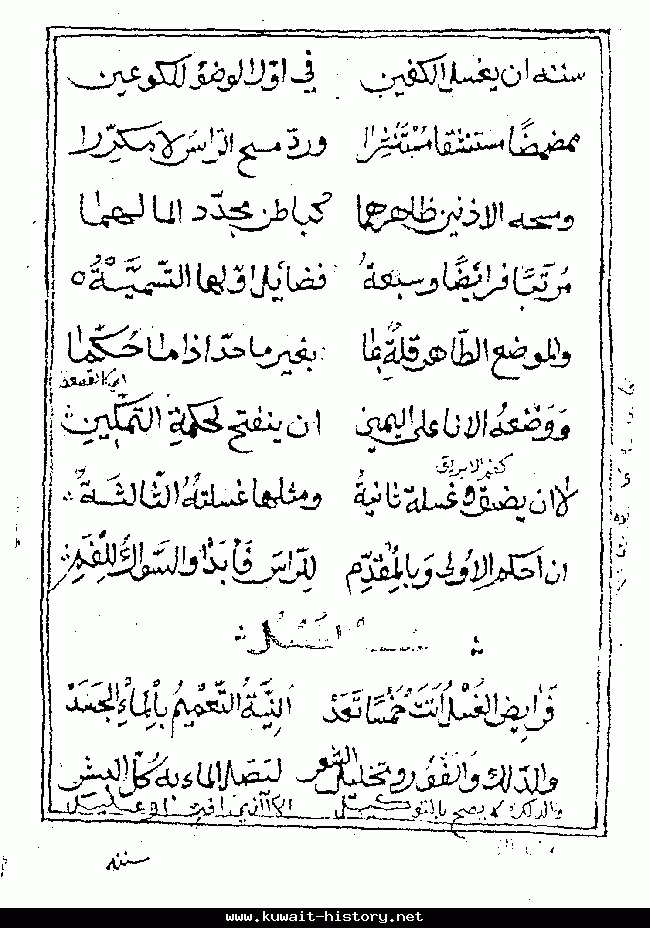 سننه ان يغسل الكفين في اول الوضو للكوعين
ممضمضًا مستنشقا مُسْتَنْثِرا وردّ مسح الراس لا مكرّرا
ومسحه الاذنين ظاهرهما كباطن مجدّد الما لهما
مُرتّبًا فرايضًا وسبعةُ فضائل اوّلها التّسميّةُ
والموضع الطّاهر قلّة بما بغير ما حدّ اذا ما حُكّما
اي كالقصعة
وَوَضْعُهُ الانا على اليمين ان ينفتح لحكمةِ التمكينِ
كفم الابريق
لا ان يضيق وغسلة ثانيةُ ومثلها غسلتهُ الثالثةُ
ان احكم الاولى وبالمُقدّمِ للرّاس فابدا والسواكُ للفمِ
الغسل
فرايض الغسل اتت خمسا تعد النيّةُ التعميمُ بالماءِ الجسد
والدلك والفور وتخليل الشعر ليصل الماء به كلّ البشر
والدلك لا يصح بالتوكيل الا لذي او عليل
سننه
www.kuwait-history.net